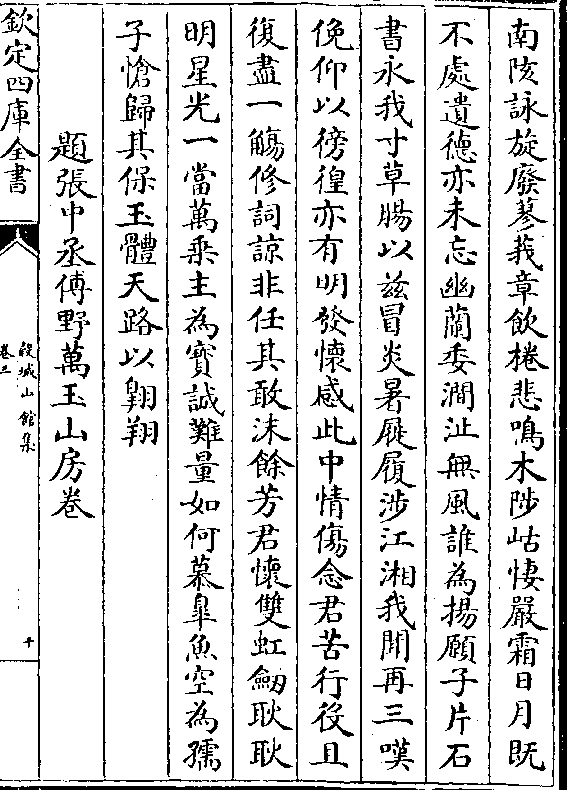 南陔詠旋廢蓼莪章飲棬悲鳴木陟岵悽嚴霜日月既
不處遺德亦未忘幽蘭委澗沚無風誰為揚願子片石
書永我寸草腸以兹冒炎暑屣履涉江湘我聞再三嘆
俛仰以徬徨亦有明發懷感此中情傷念君苦行役且
復盡一觴修詞諒非任其敢沬餘芳君懷雙虹劒耿耿
明星光一當萬乘主為寳誠難量如何慕臯魚空為孺
子愴歸其保玉體天路以翺翔
題張中丞傅野萬玉山房卷
欽定四庫全書
穀城山館集
卷三
十